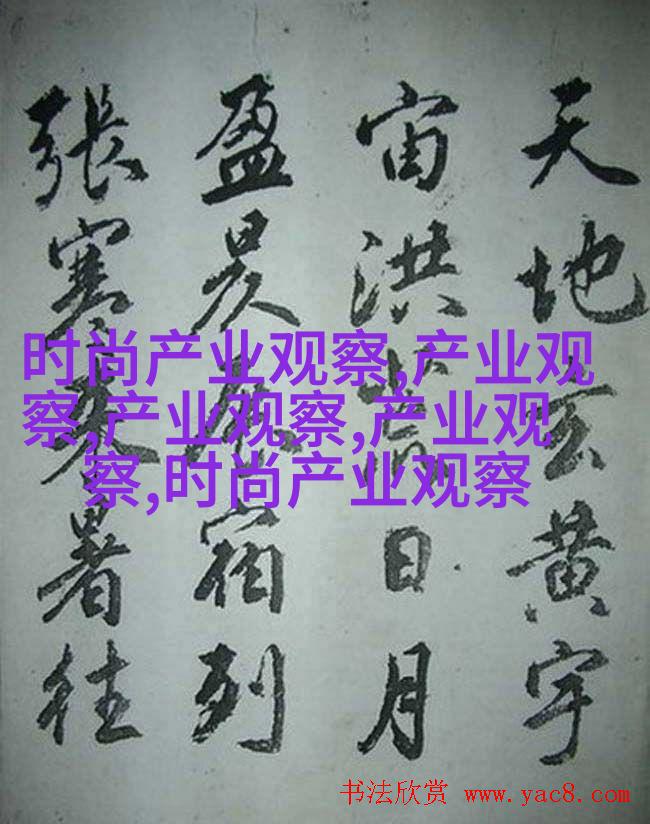 天地玄黄宇
宙洪日月
盈昃宿列
張寒来暑往
时尚产业观察,产业观
察,产业观察,产业观
察,时尚产业观察
书法欣赏 www.yac8.com